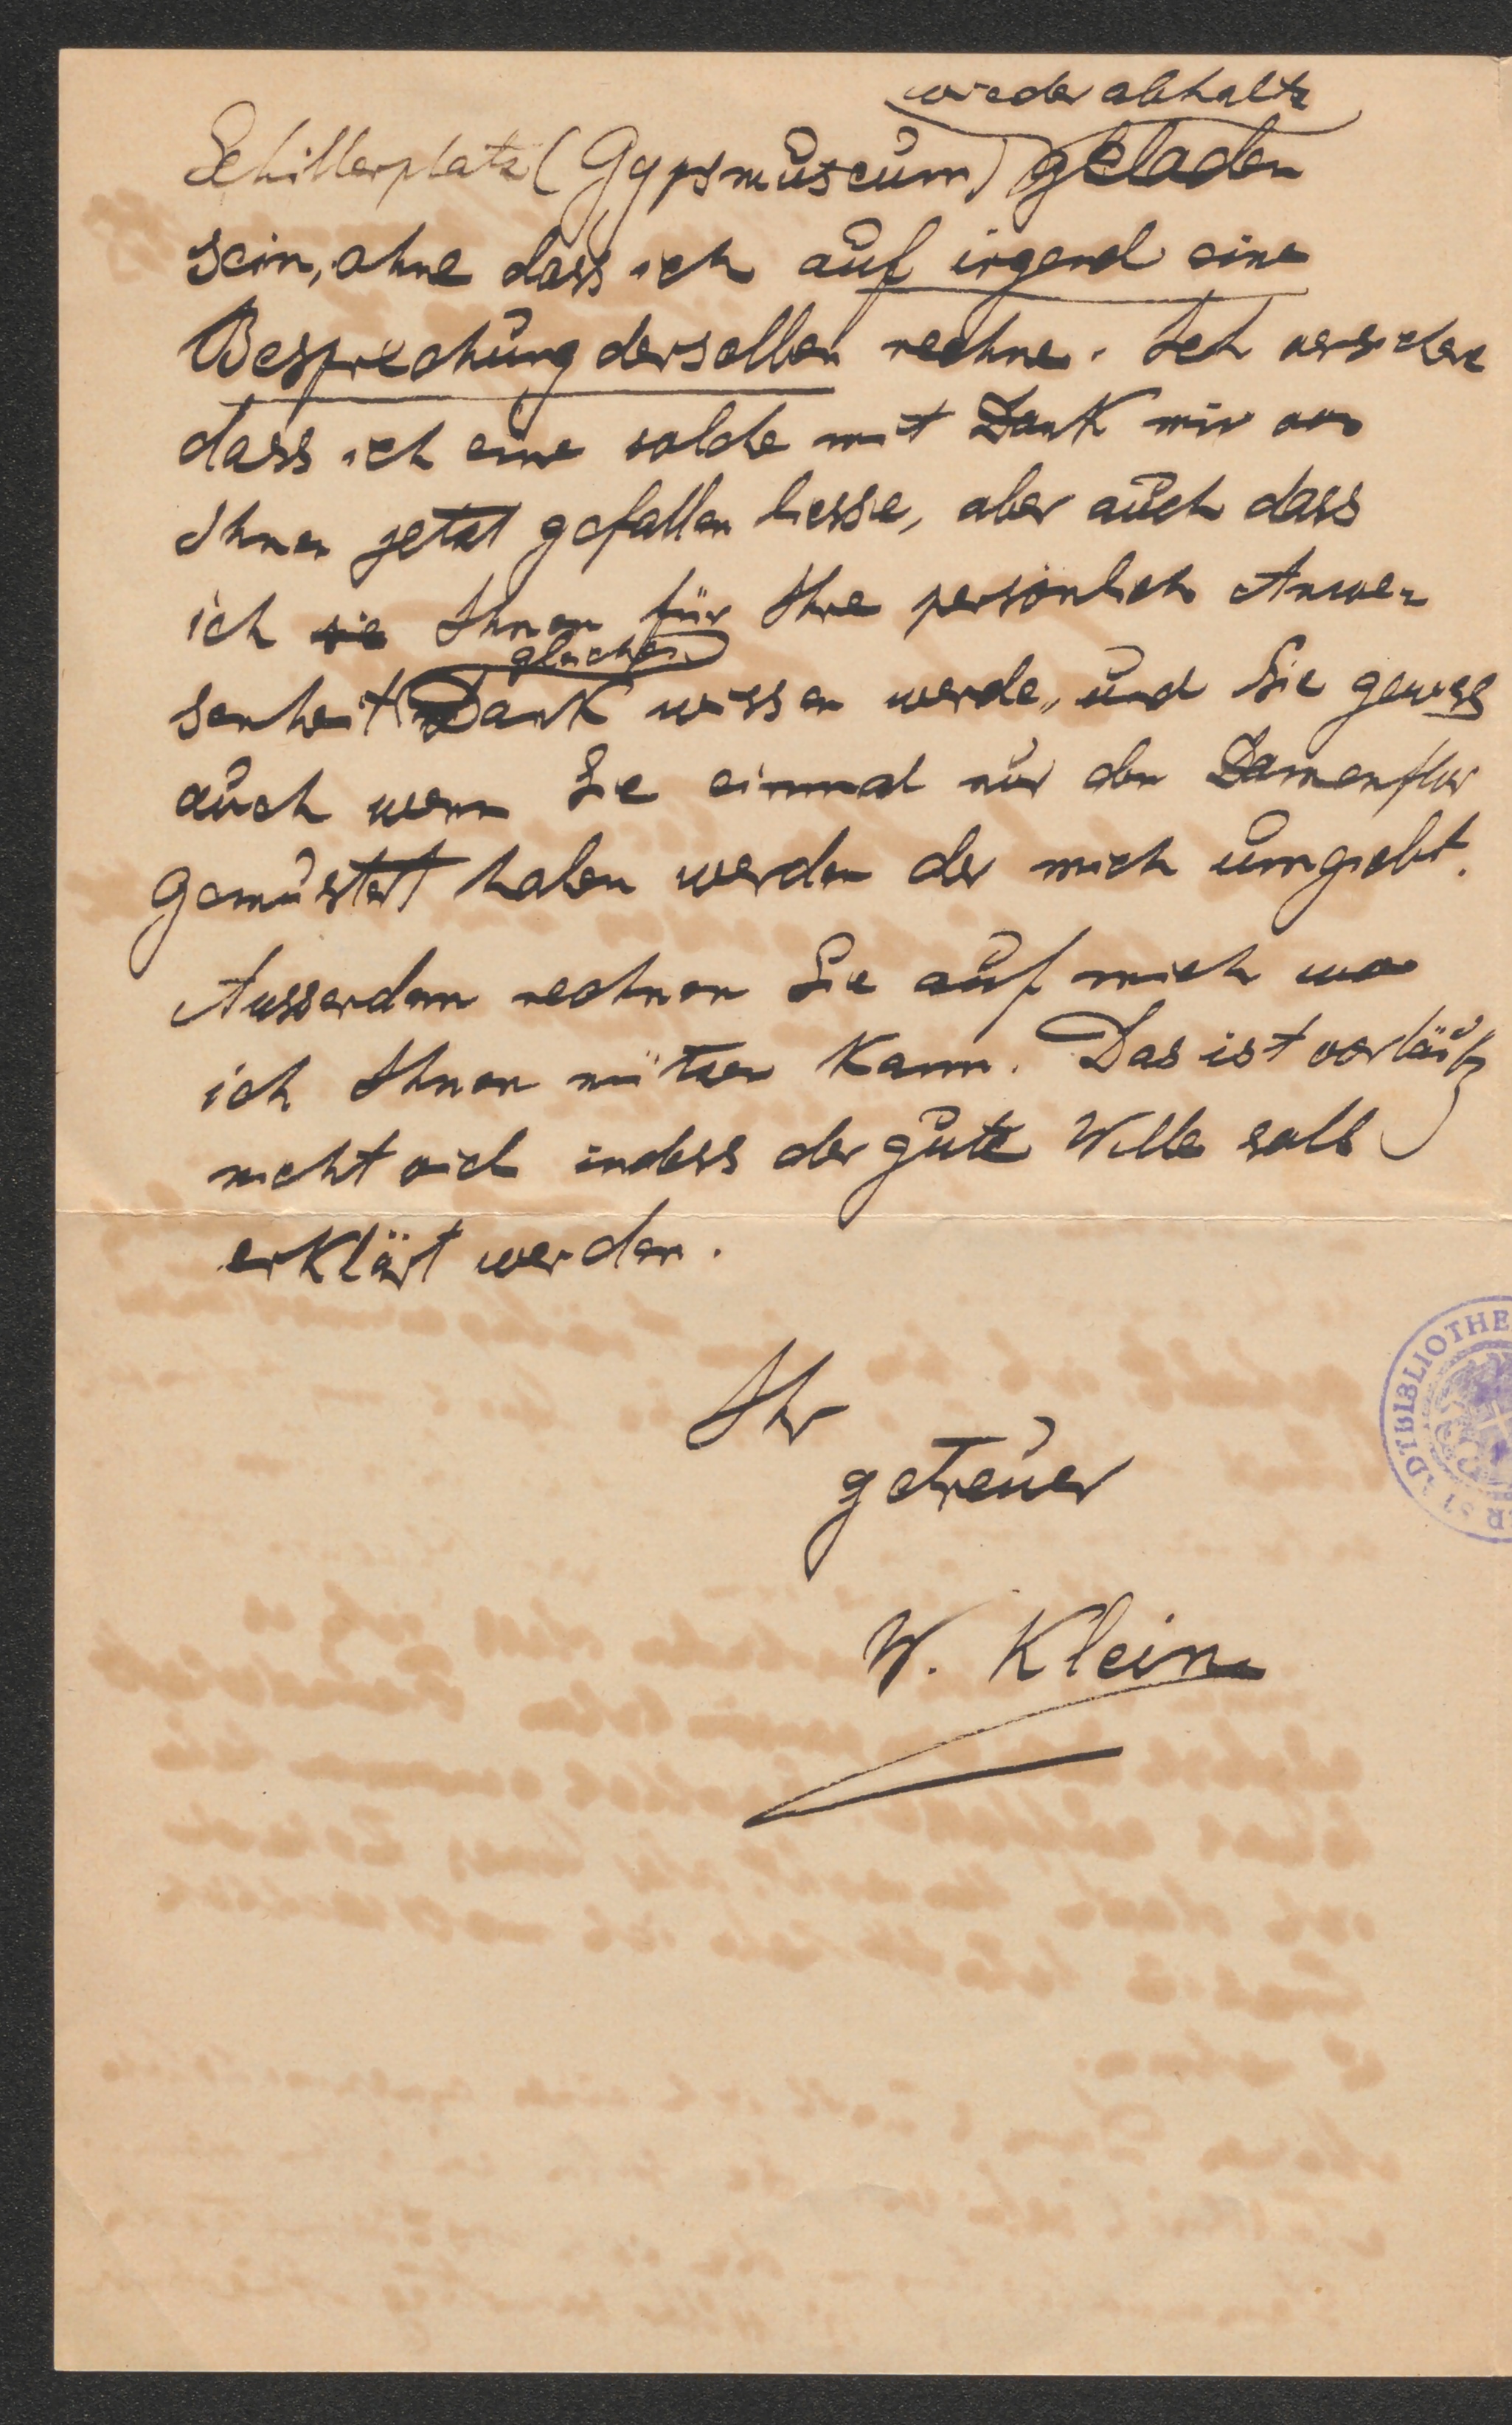 wieder abhalte
Schillerplatz (Gypsmuseum) geladen
sein, ohne dass ich auf irgend eine
Besprechung derselben rechne. Ich versichere
dass ich eine solche mit Dank mir von
Ihnen jetzt gefallen liesse, aber auch dass
ich sie Ihnen für Ihre persönlich Anwe-
gleichen
senheit Dank wissen werde, und Sie gewiss
auch wenn Sie einmal nur den Damenflor
gemustert haben werden der mich umgiebt.
Ausserdem rechnen Sie auf mich wo
ich Ihnen nützen kann. Das ist vorläufig
nicht viel indess der gute Wille soll
erklärt werden.
Ihr
getreuer
W. Klein
STADTBIBLIOTHE